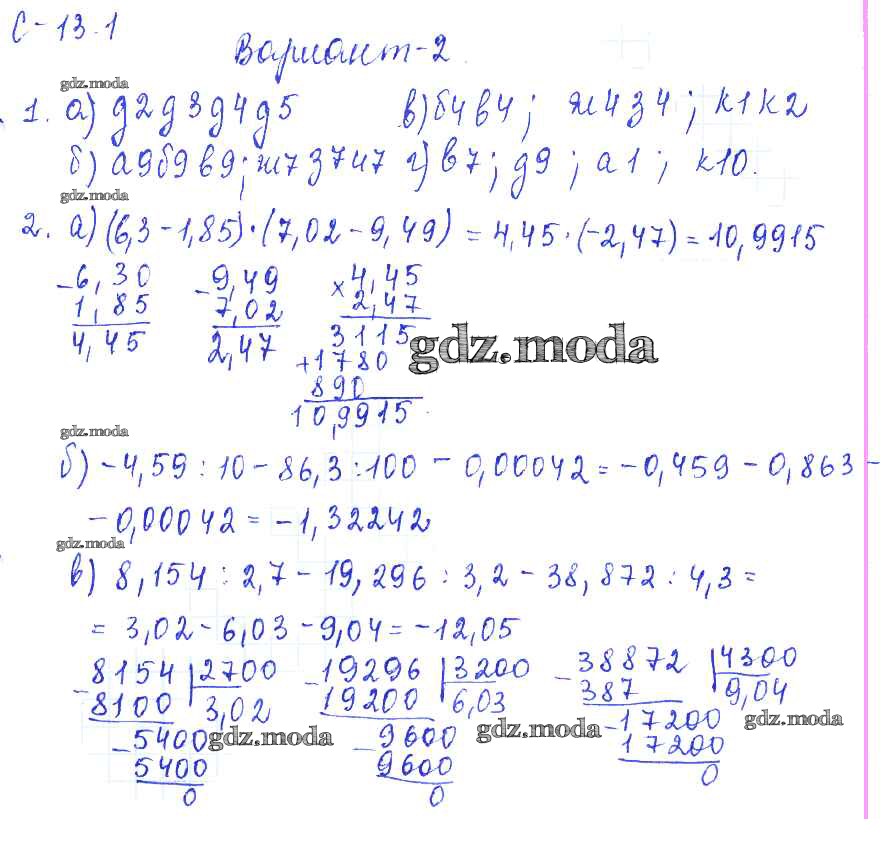 С-13.1
Вариант-2.
gdz.moda
1. а) g2g3g4g5 в) б4в4; ж4з4; к1к2
б) а9б9в9; ж7з7и7 г) в7; g9; а1; к10.
gdz.moda
2. а) (6,3-1,85)·(7,02-9,49)=4,45·(-2,47)=10,9915
-6,30 -9,49 ×4,45
1,85 7,02 2,47
4,45 2,47 3115
gdz.moda
+1780
890
10,9915
gdz.moda
б) -4,59:10-86,3:100-0,00042=-0,459-0,863-
-0,00042=-1,32242
gdz.moda
в) 8,154:2,7-19,296:3,2-38,872:4,3=
=3,02-6,03-9,04=-12,05
-8154 2700 -19296 3200 -38872 4300
8100 3,02 19200 6,03 387 9,04
-5400 gdz.moda -9600 gdz.moda -17200 gdz.moda
5400 9600 17200
0 0 0